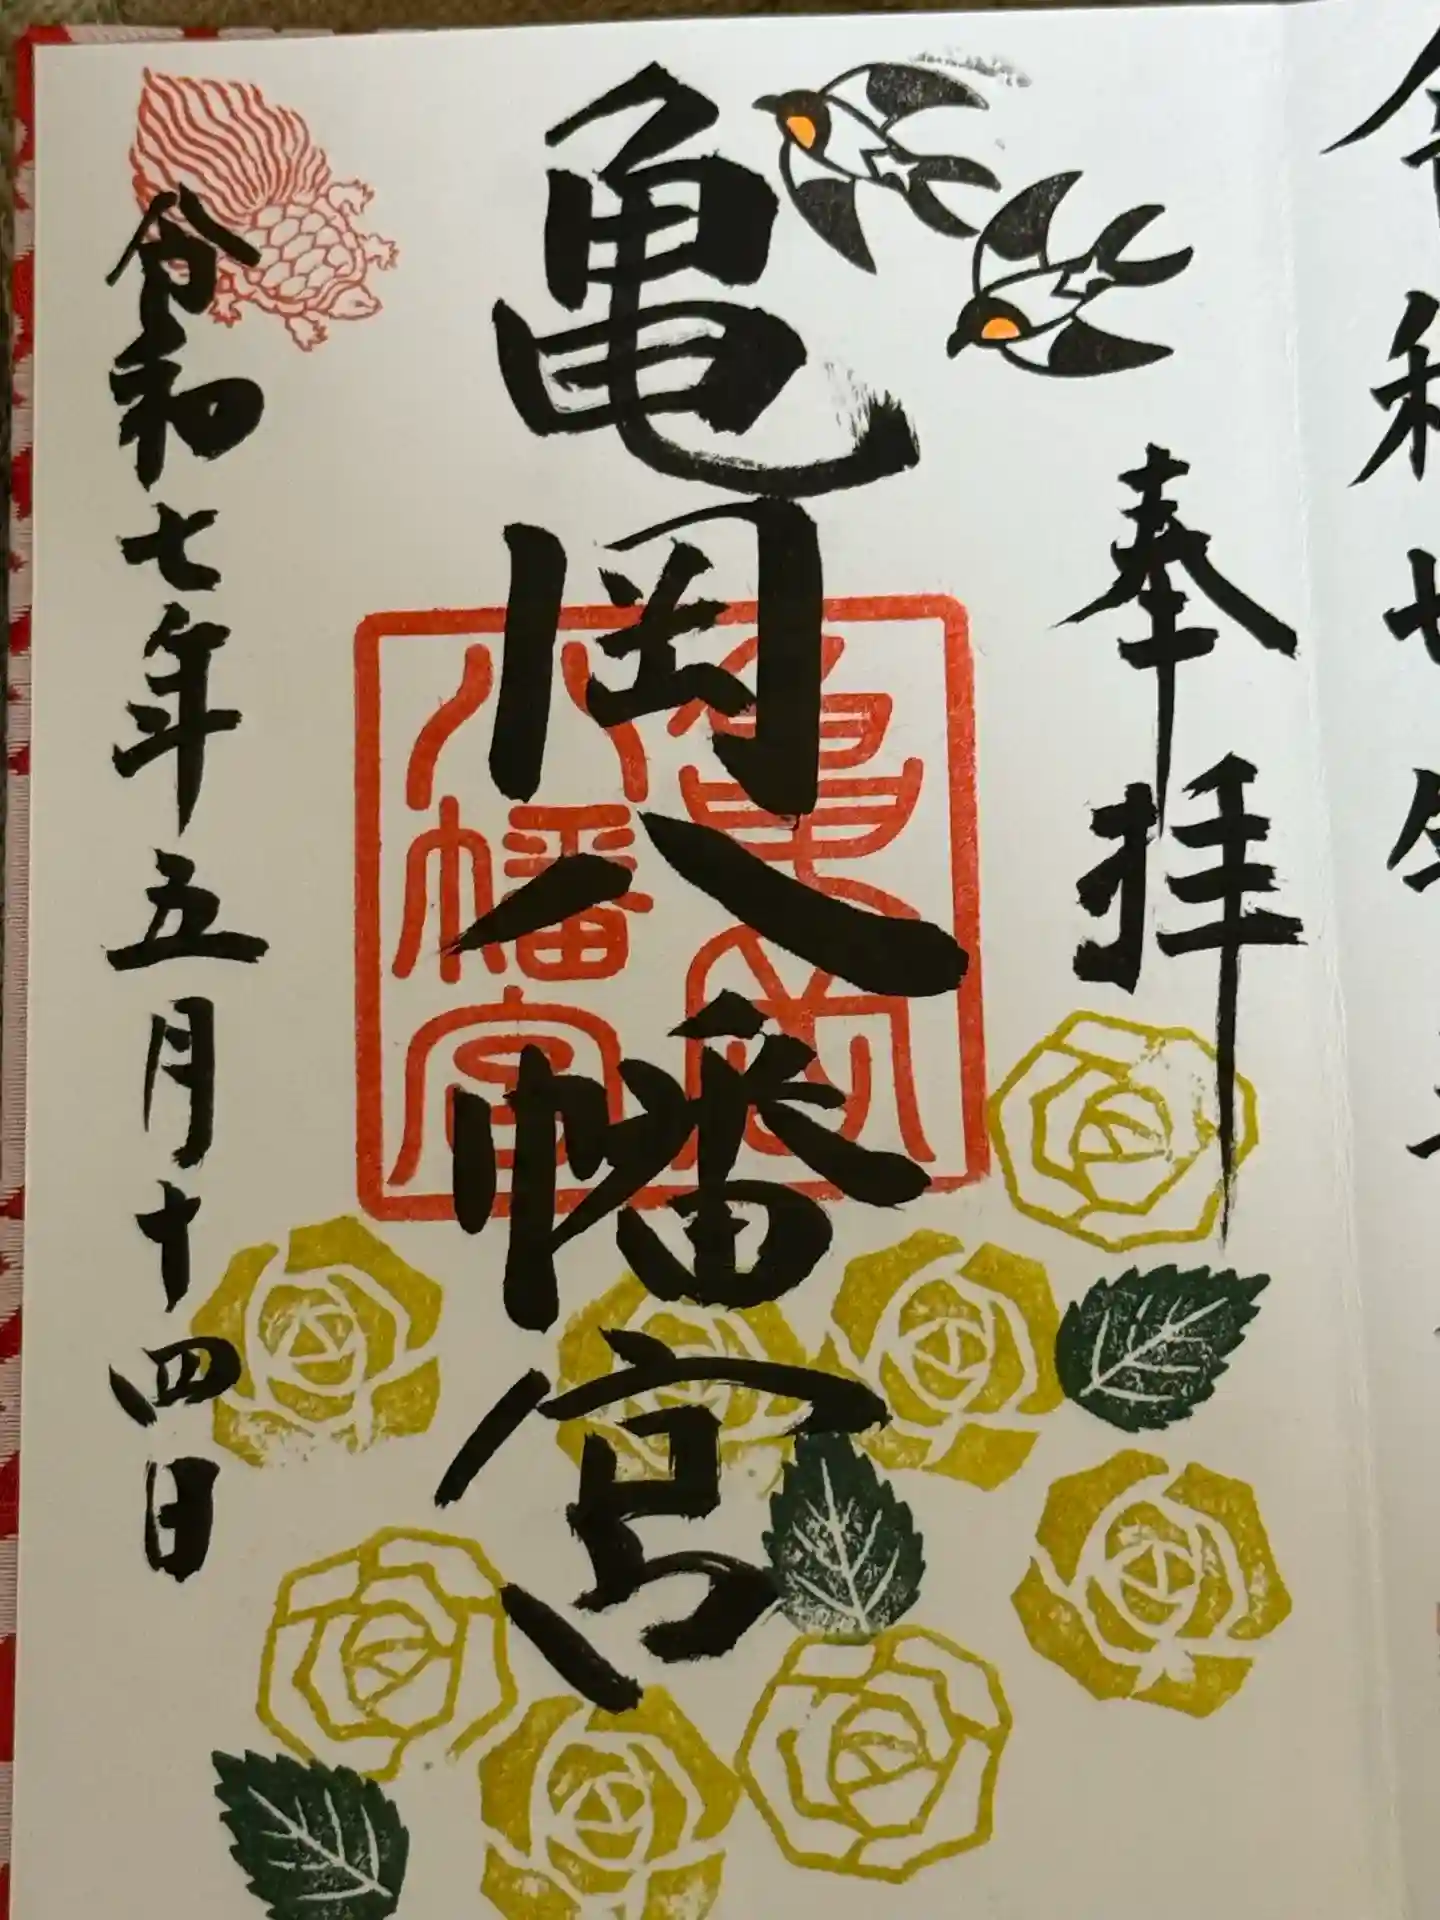 奉拝
亀岡八幡宮
亀岡
八幡宮
令和七年五月十四日